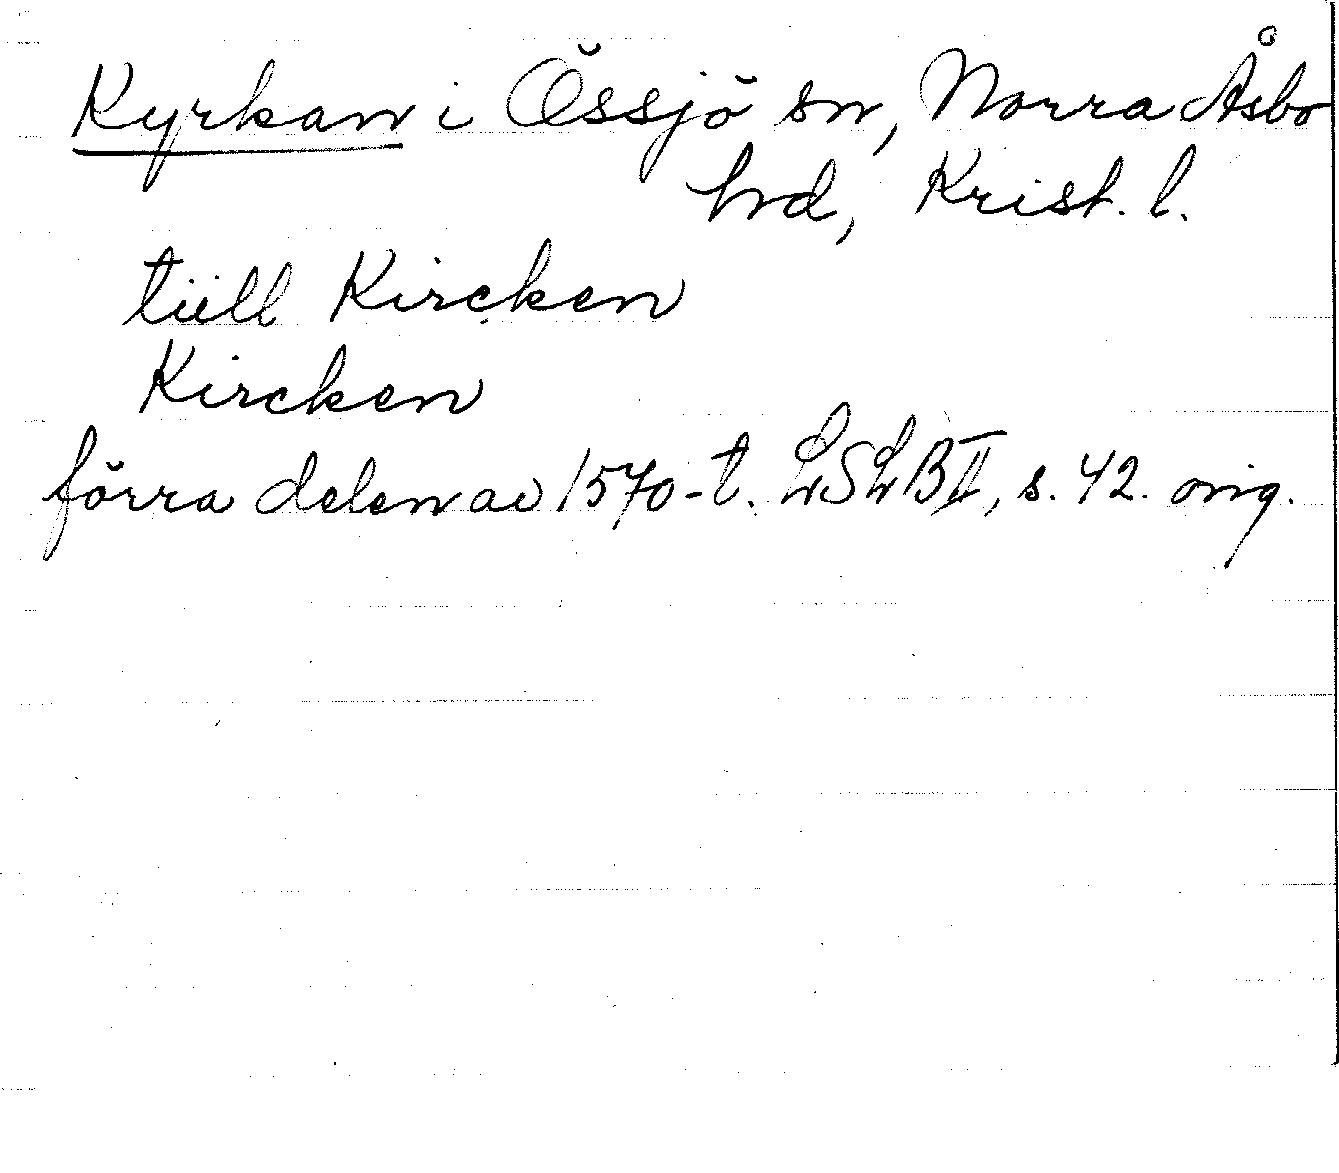 Kyrkan i Össjö sn, Norra Åsbo
hrd, Krist. l.
tiill Kircken
Kircken
förra delen av 1570-t. LSLB II, s. 42. orig.